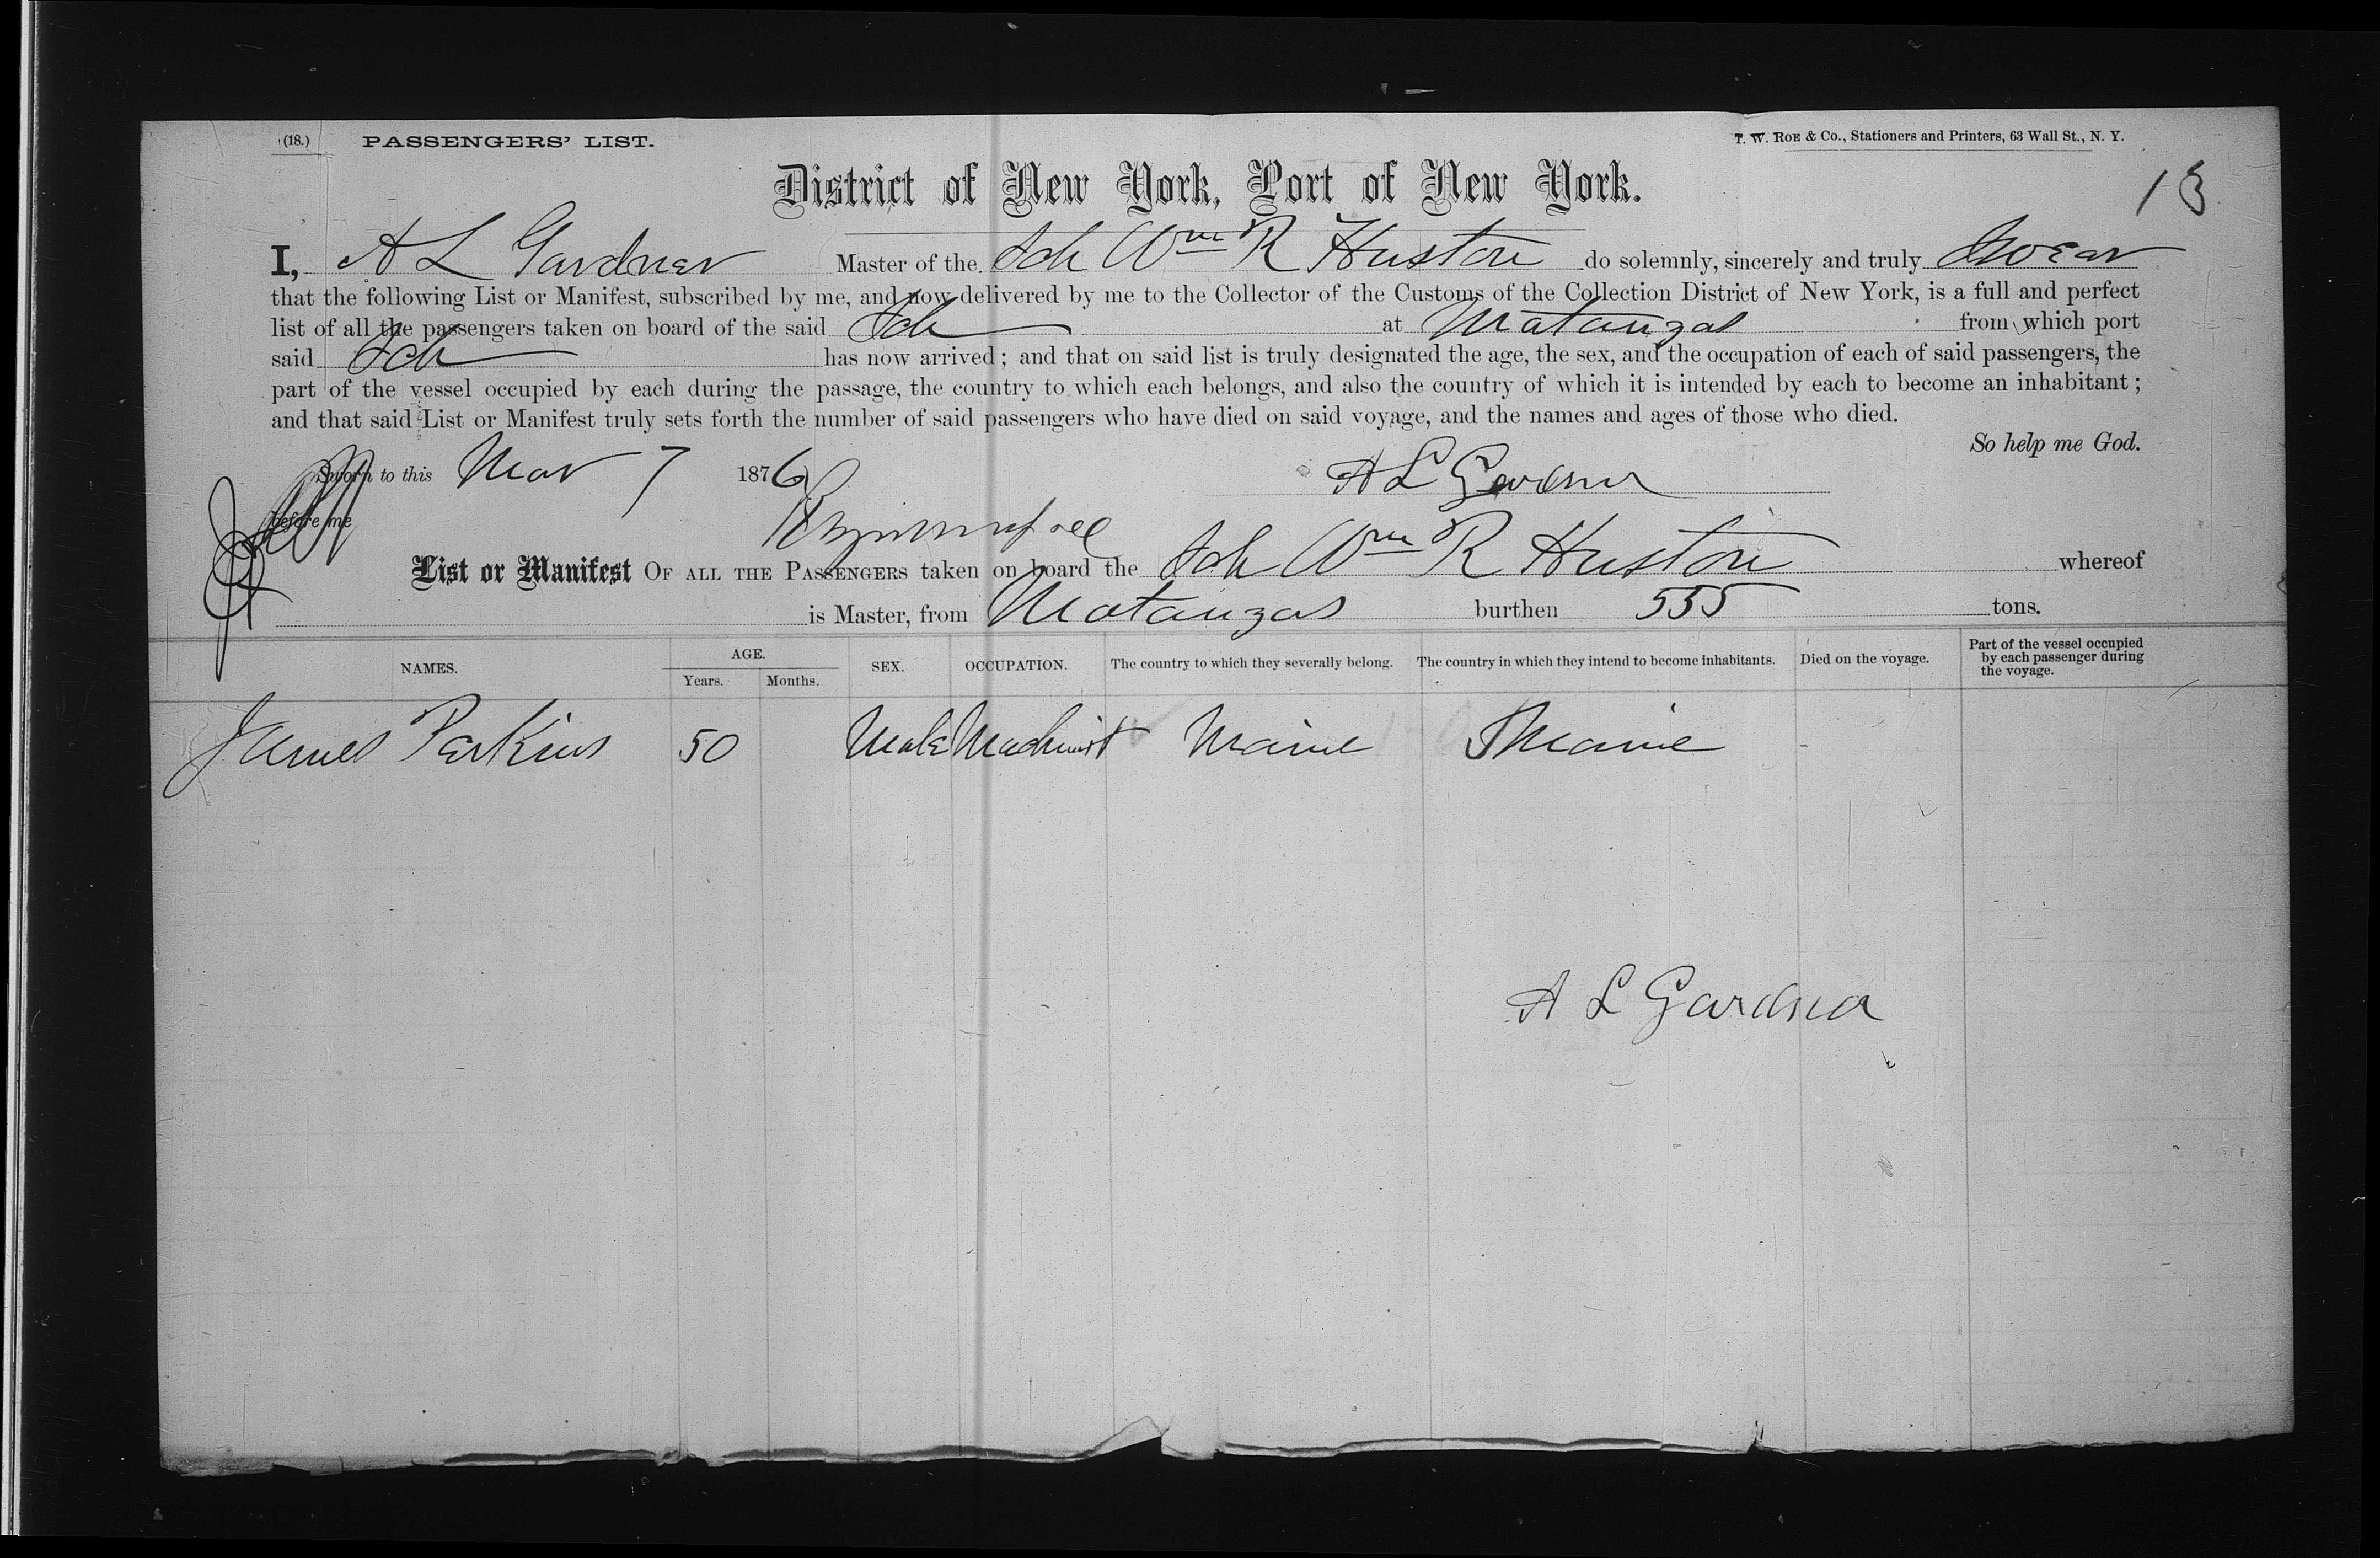 (18.) PASSENGERS' LIST. T. W. ROE & Co., Stationers and Printers, 63 Wall St., N. Y.
District of New York, Port of New York.
13
I, A L Gardner Master of the Sch Wm R Huston do solemnly, sincerely and truly Swear
that the following List or Manifest, subscribed by me, and now delivered by me to the Collector of the Customs of the Collection District of New York, is a full and perfect
list of all the passengers taken on board of the said Sch at Matanzas from which port
said Sch has now arrived; and that on said list is truly designated the age, the sex, and the occupation of each of said passengers, the
part of the vessel occupied by each during the passage, the country to which each belongs, and also the country of which it is intended by each to become an inhabitant;
and that said List or Manifest truly sets forth the number of said passengers who have died on said voyage, and the names and ages of those who died.
So help me God.
Sworn to this Mar 7 1876 A L Gardner
before me
List or Manifest OF ALL THE PASSENGERS taken on board the Sch Wm R Huston whereof
is Master, from Matanzas burthen 555 tons.
NAMES. AGE. Years. Months. SEX. OCCUPATION. The country to which they severally belong. The country in which they intend to become inhabitants. Died on the voyage. Part of the vessel occupied by each passenger during the voyage.
James Perkins 50 Male Machinist Maine Maine
A L Gardner